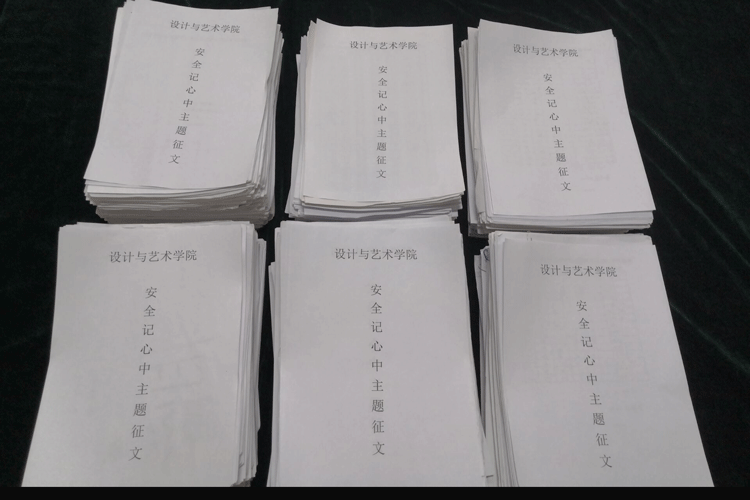 设计与艺术学院
安全记心中主题征文
设计与艺术学院
安全记心中主题征文
设计与艺术学院
安全记心中主题征文
设计与艺术学院
安全记心中主题征文
设计与艺术学院
安全记心中主题征文
设计与艺术学院
安全记心中主题征文